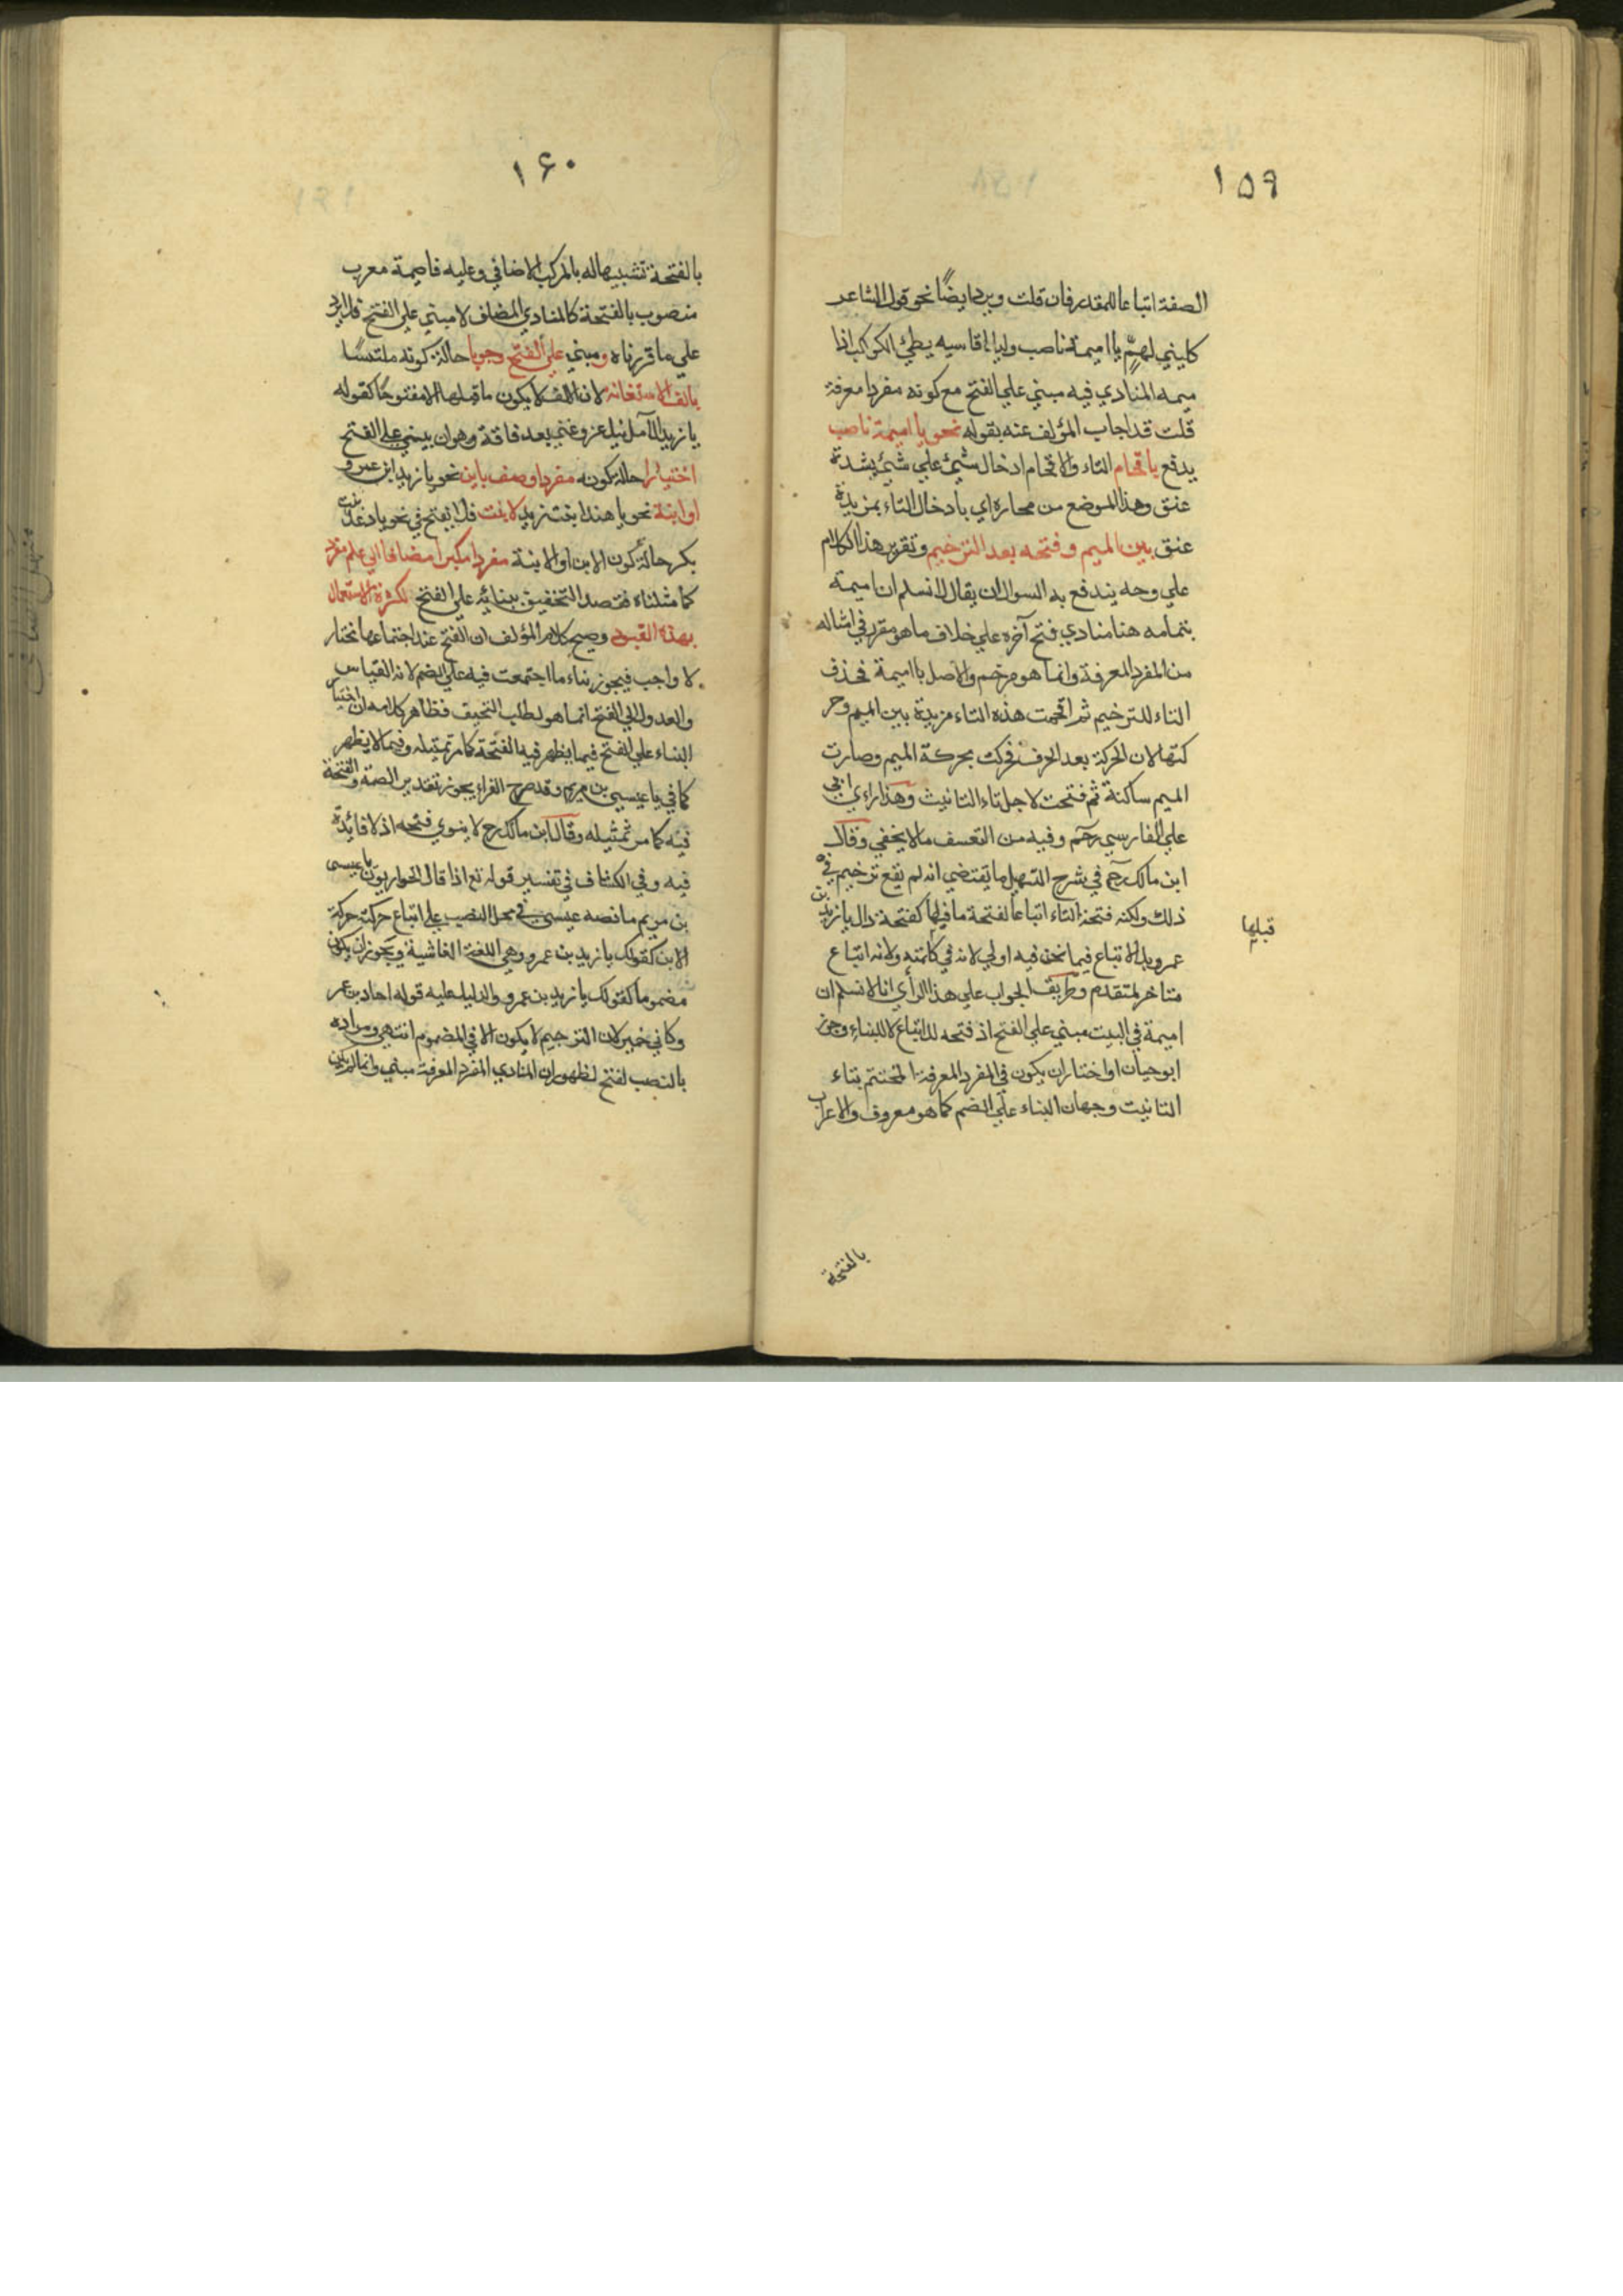 ١٥٩
الصفة اتباعا للمقدم فان قلت ويرد ايضًا نحو قول الشاعر
كليني لهمٍّ يا اميمة ناصب وليل اقاسيه بطئ الكواكب اذا
ميمه المنادي فيه مبني علي الفتح مع كونه مفردا معرفة
قلت قد اجاب المؤلف عنه بقوله نحو يا اميمة ناصب
يدفع باقحام التاء والاقحام ادخال شئ علي شئ بشدة
عنق وهذا الموضع من محاره اي بادخال التاء بمزيدة
عنق بين الميم وفتحه بعد الترخيم وتقرير هذا الكلام
علي وجه يندفع به السوال ان يقال لا نسلم ان اميمة
بتمامه هنا منادي فتح آخره علي خلاف ما هو مقرر في امثاله
من المفرد المعرفة وانما هو مرخم والاصل يا اميمة فحذف
التاء للترخيم ثم اقحمت هذه التاء مزيدة بين الميم وحر
كتها لان الحركة بعد الحرف فحركت بحركة الميم وصارت
الميم ساكنة ثم فتحت لاجل تاء التانيث وهذا راءي ابي
علي الفارسي رحم وفيه من التعسف ما لا يخفي وقال
ابن مالك رح في شرح التسهيل ما يقتضي انه لم يقع ترخيم في
ذلك ولكنه فتحة التاء اتباعا لفتحة ما فيها كفتحة دال يا زيد بن
قبلها
عمرو بل الاتباع فيما نحن فيه اولي لانه في كلمته ولانه اتباع
متاخر لمتقدم وطريق الجواب علي هذا الرأي انا لا نسلم ان
اميمة في البيت مبني علي الفتح اذ فتحه للاتباع لا للبناء وجوز
ابو حيان او اختار ان يكون في المفرد المعرفة المختتم بتاء
التانيث وجهان البناء علي الضم كما هو معروف والاعراب
بالفتحة
١۶٠
بالفتحة تشبيها له بالمركب الاضافي وعليه فاميمة معرب
منصوب بالفتحة كالمنادي المضاف لا مبني علي الفتح فلا يرد
علي ما قررناه ومبني علي الفتح وجوبا حالة كونه ملتبسًا
بالف الاستغاثة لان الالف لا يكون ما قبلها الا مفتوحًا كقوله
يا زيدا لآمل نيل عز وغني بعد فاقة وهوان يبني علي الفتح
اختيارا حالة كونه مفردا وصف بابن نحو يا زيد ابن عمرو
او ابنة نحو يا هند ابنت زيد لا بنت فلا يفتح في نحو يا دعد بنت
بكر حالة كون الابن او الابنة مفردا مكبرا مضافا الي علم مفرد
كما مثلناء فقصد التخفيف ببنائه علي الفتح لكثرة الاستعمال
بهذه القيود وصح كلام المؤلف ان الفتح عند اجتماعها نختار
لا واجب فيجوز بناء ما اجتمعت فيه علي الضم لانه القياس
والعدول الي الفتح انما هو لطلب التخيف فظاهر كلامه ان اختيار
البناء علي الفتح فيما يظهر فيه الفتحة كما مر تمثيله وفيما لا يظهر
كما في يا عيسي بن مريم وقد صرح الفراء بجوز تقدير الضمة والفتحة
فيه كما مر تمثيله وقال ابن مالك رح لا ينوي فتحه اذ لا فائدة
فيه وفي الكشاف في تفسير قوله تع اذا قال الحواريون يا عيسي
بن مريم ما نصه عيسي في محل النصب علي اتباع حركته حركة
الابن كقولك يا زيد بن عمرو وهي اللغة الفاشية ويجوز ان يكون
مضموما كقولك يا زيد بن عمرو والدليل عليه قوله احار بن عمر
وكاني خمر لان الترخيم لا يكون الا في المضموم انتهي ومراده
بالنصب لفتح لظهور ان المنادي المفرد المعرفة مبني وانما لم يكن